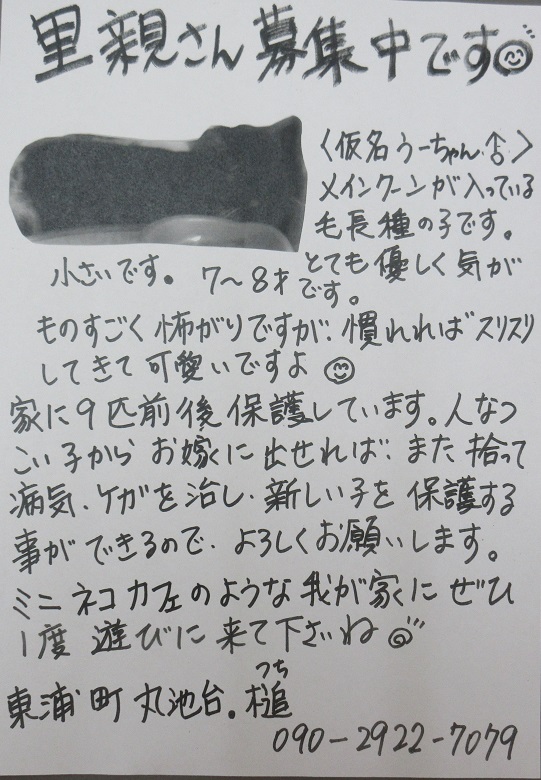 里親さん募集中です
〈仮名うーちゃん♂〉
メインクーンが入っている
毛長種の子です。
小さいです。 7〜8才 とても優しく気が
です。
ものすごく怖がりですが、慣れればスリスリ
してきて可愛いですよ
家に9匹前後保護しています。人なつ
こい子から お嫁に出せれば、また拾って
病気、ケガを治し、新しい子を保護する
事ができるので、よろしくお願いします。
ミニネコカフェのような我が家にぜひ
1度遊びに来て下さいね
つち
東浦町丸池台。槌
090-2922-7079